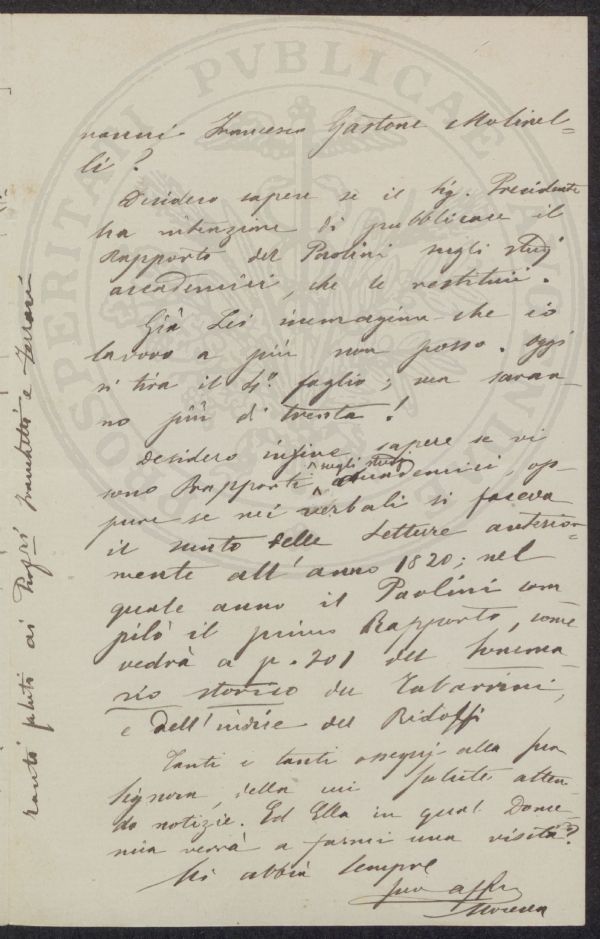 nanni Francesco Gastone Molinel-
li?
Desidero sapere se il Sig. Presidente
ha intenzione di pubblicare il
Rapporto del Paolini negli studj
accademici, che le restituii.
Già Lei immagina che io
lavoro a più non posso. Oggi
si tira il foglio; ma saran-
no più di trenta!
Desidero infine sapere se vi
sono Rapporti negli studj accademici, op-
pure se nei verbali si faceva
il sunto delle Letture anterior-
mente all'anno 1820; nel
quale anno il Paolini com
pilò il primo Rapporto, come
vedrà a p. 201 del Somma-
rio storico del Tabarrini,
e dell'indice del Ridolfi
Tanti e tanti ossequj alla sua
Signora, della cui salute atten-
do notizie. Ed Ella in qual Dome-
nica verrà a farmi una visita?
Mi abbia sempre
Suo aff
tanti saluti ai Prof.ri Franchetti e Ferrari
PROSPERITATI PVBLICAE AVGENDAE